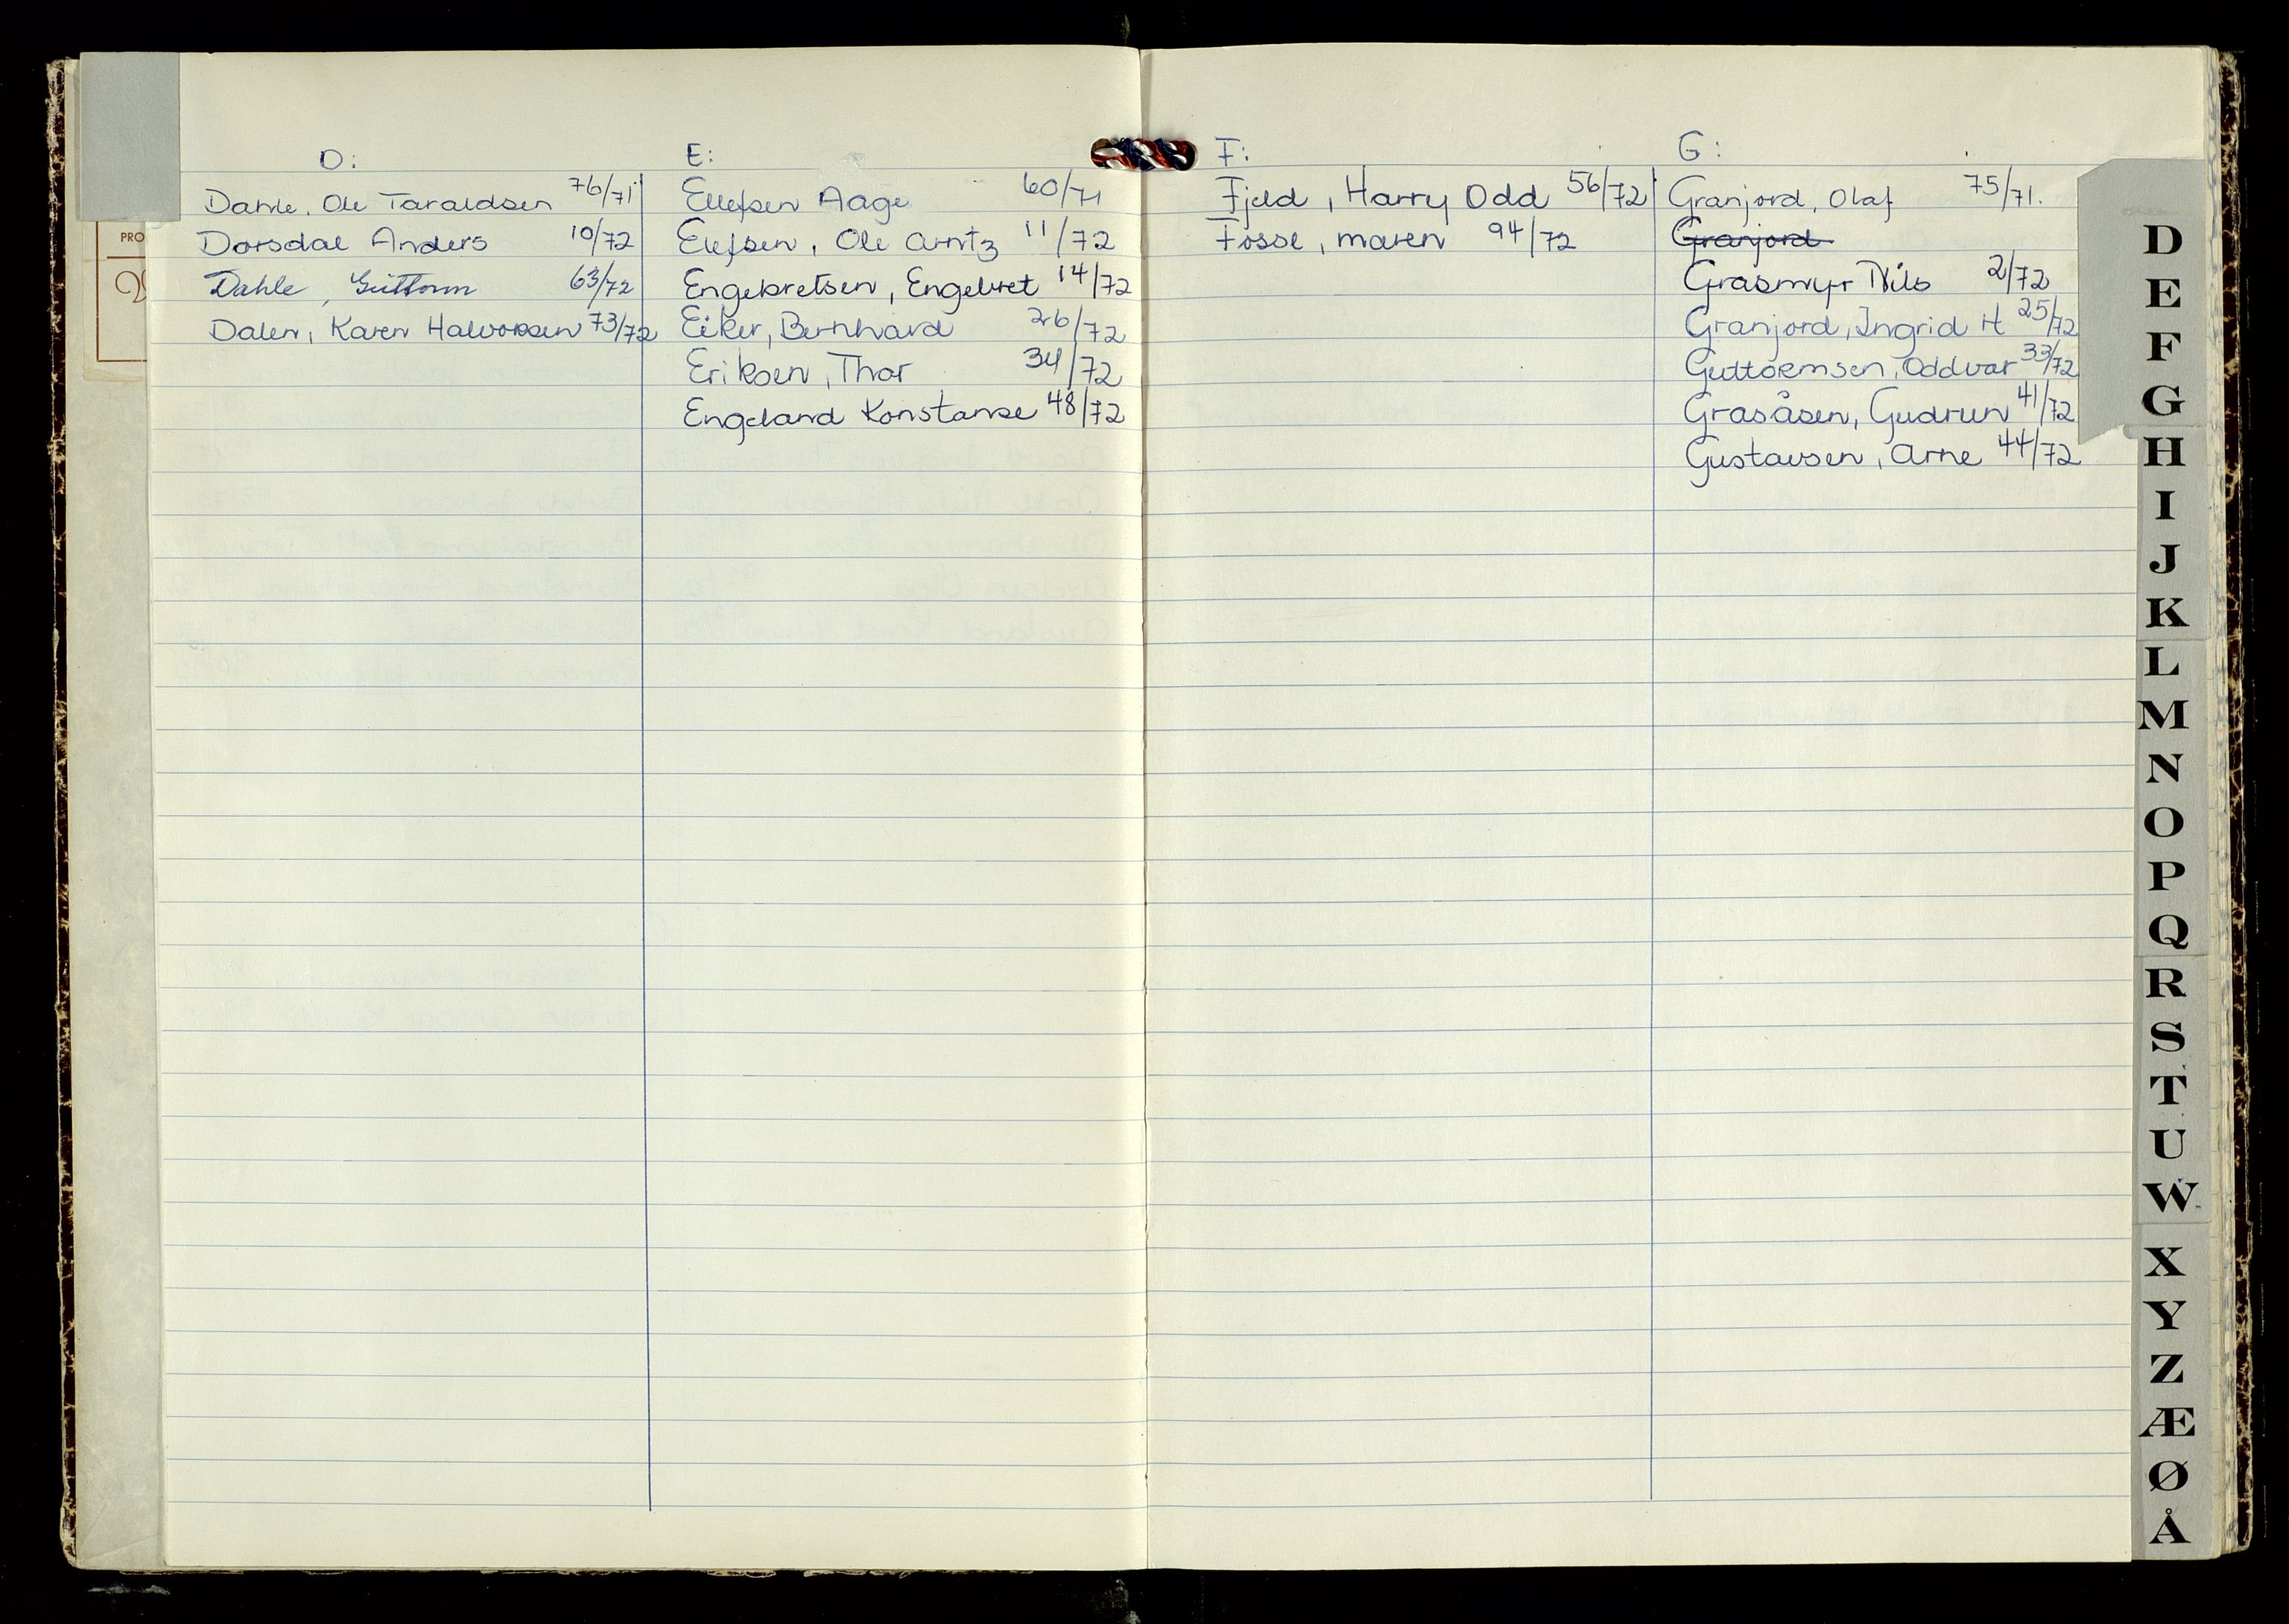 D:
Dahle, Ole Taraldsen 76/71
Dorsdal Anders 10/72
Dahle, Guttorm 63/72
Dalen, Karen Halvorsen 73/72
E:
Ellefsen Aage 60/71
Elefsen, Ole Arntz 11/72
Engebretsen, Engebret 14/72
Eiker, Bernhard 26/72
Eriksen, Thor 34/72
Engeland Konstanse 48/72
F:
Fjeld, Harry Odd 56/72
Fosse, maren 94/72
G:
Granjord, Olaf 75/71.
Granjord
Grasmyr Nils 2/72
Granjord, Ingrid H 25/72
Guttormsen, Oddvar 33/72
Gråsåsen, Gudrun 41/72
Gustavsen, Arne 44/72
PRO
D
E
F
G
H
I
J
K
L
M
N
O
P
Q
R
S
T
U
W
X
Y
Z
Æ
Ø
Å